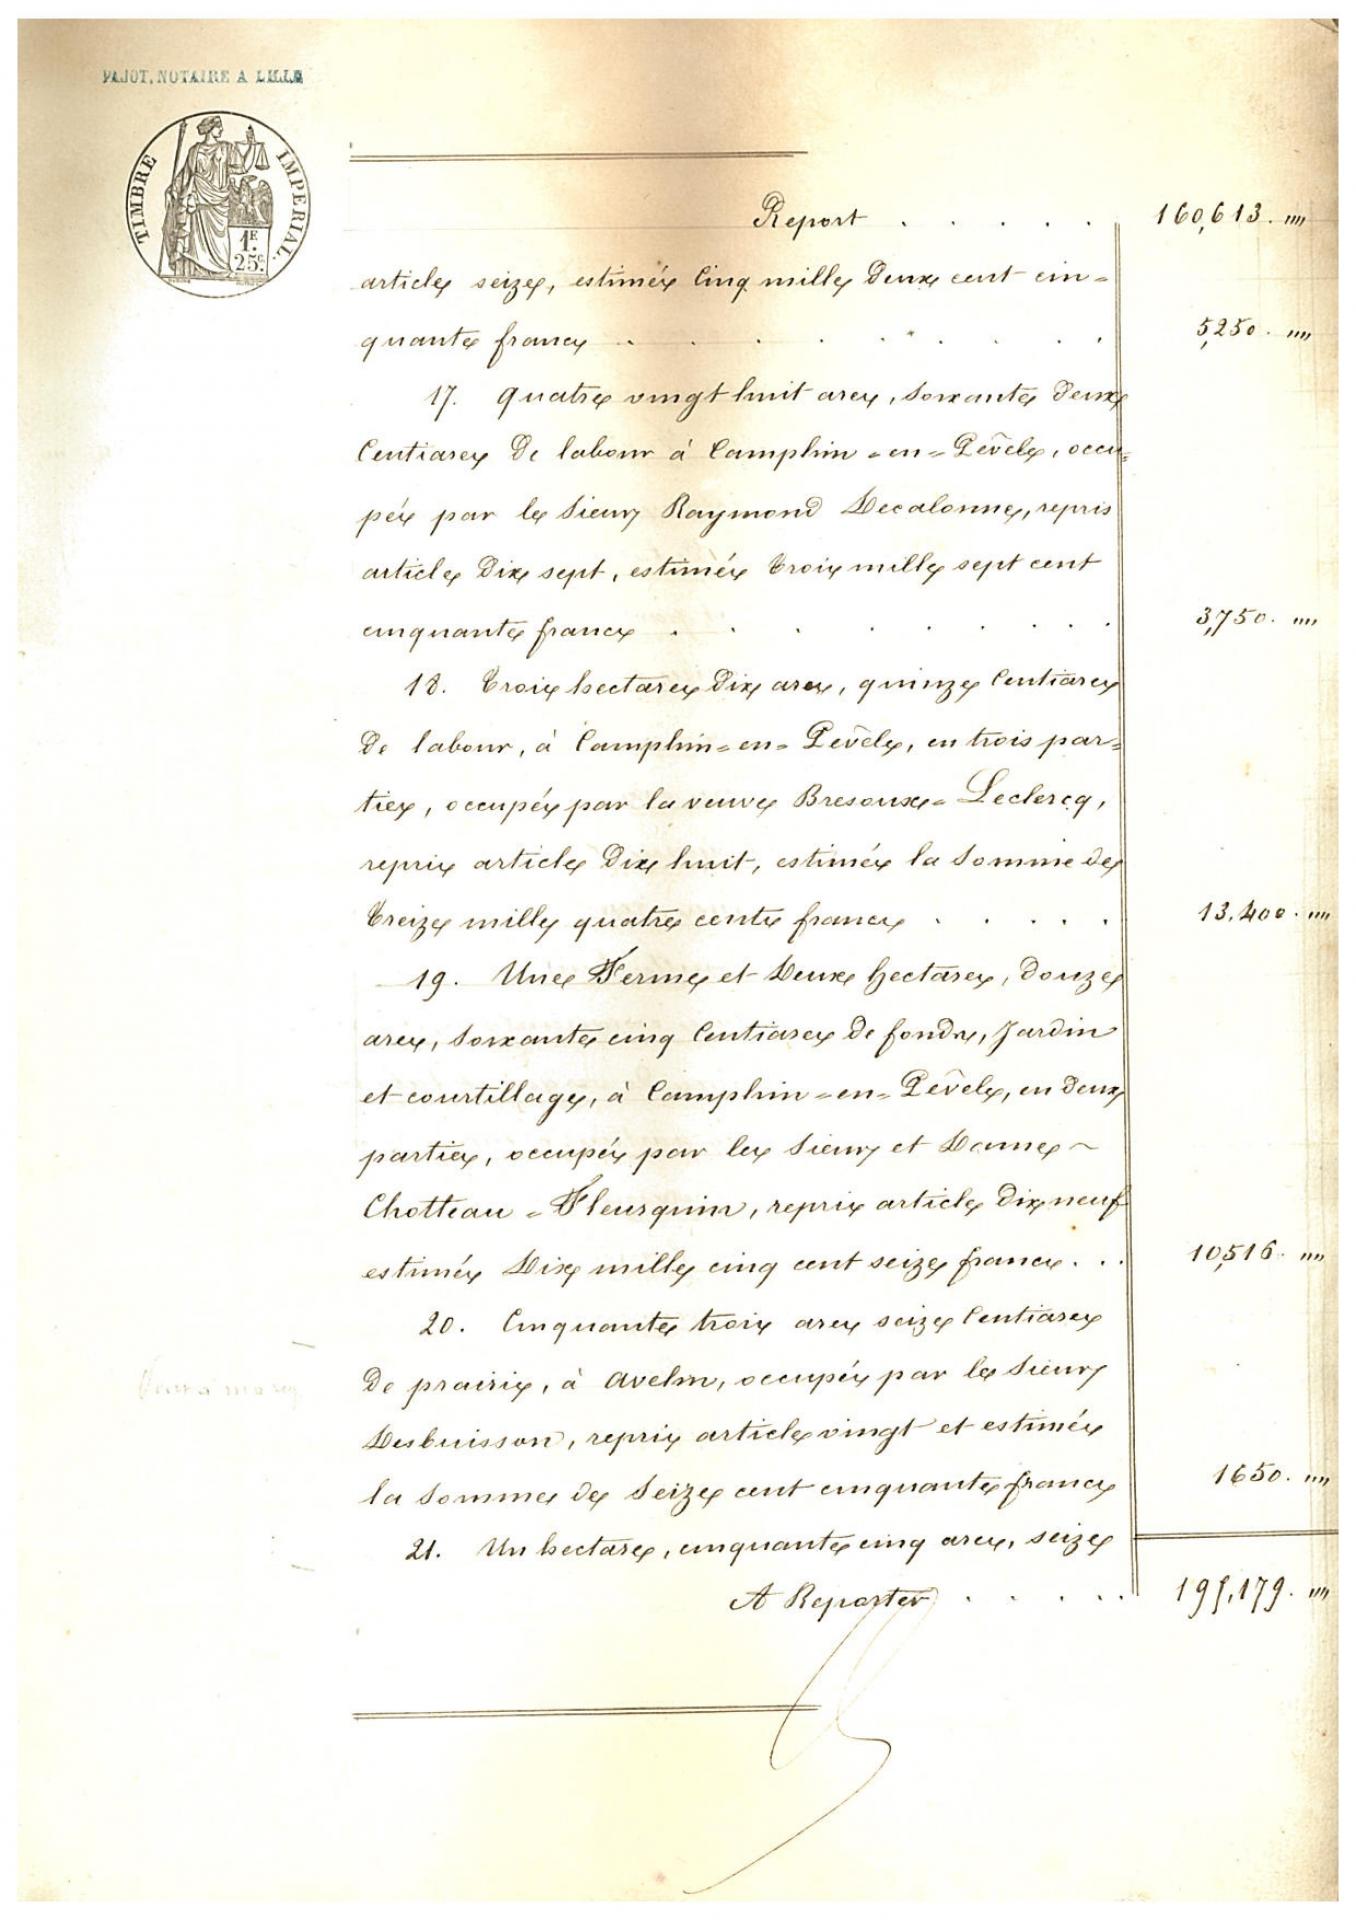 PAJOT, NOTAIRE A LILLE
TIMBRE IMPERIAL.
1F.
25c.
Report . . . . . 160,613. ""
article seize, estimée Cinq mille deux cent cin=
quante francs . . . . . . . . 5,250. ""
17. Quatre vingt huit ares, soixante deux
Centiares de labour à Camphin=en=Pévèle, occu=
pée par le sieur Raymond Decalonne, repris
article dix sept, estimée trois mille sept cent
cinquante francs . . . . . . . . 3,750. ""
18. Trois hectares dix ares, quinze Centiares
de labour, à Camphin=en=Pévèle, en trois par=
ties, occupée par la veuve Bresoux=Leclercq,
repris article dix huit, estimée la somme de
treize mille quatre cents francs . . . . 13.400. ""
19. Une Ferme et Deux hectares, douze
ares, soixante cinq Centiares de fonds, Jardin
et courtillage, à Camphin=en=Pévèle, en deux
parties, occupée par les sieur et Dame ~
Chotteau=Fleurquin, repris article dix neuf
estimée Dix mille cinq cent seize francs . . . 10,516. ""
20. Cinquante trois ares seize Centiares
de prairie, à Avelin, occupée par le sieur
Desbuisson, repris article vingt et estimée
la somme de Seize cent cinquante francs 1650. ""
21. Un hectare, cinquante cinq ares, seize
A Reporter . . . . . 195,179. ""